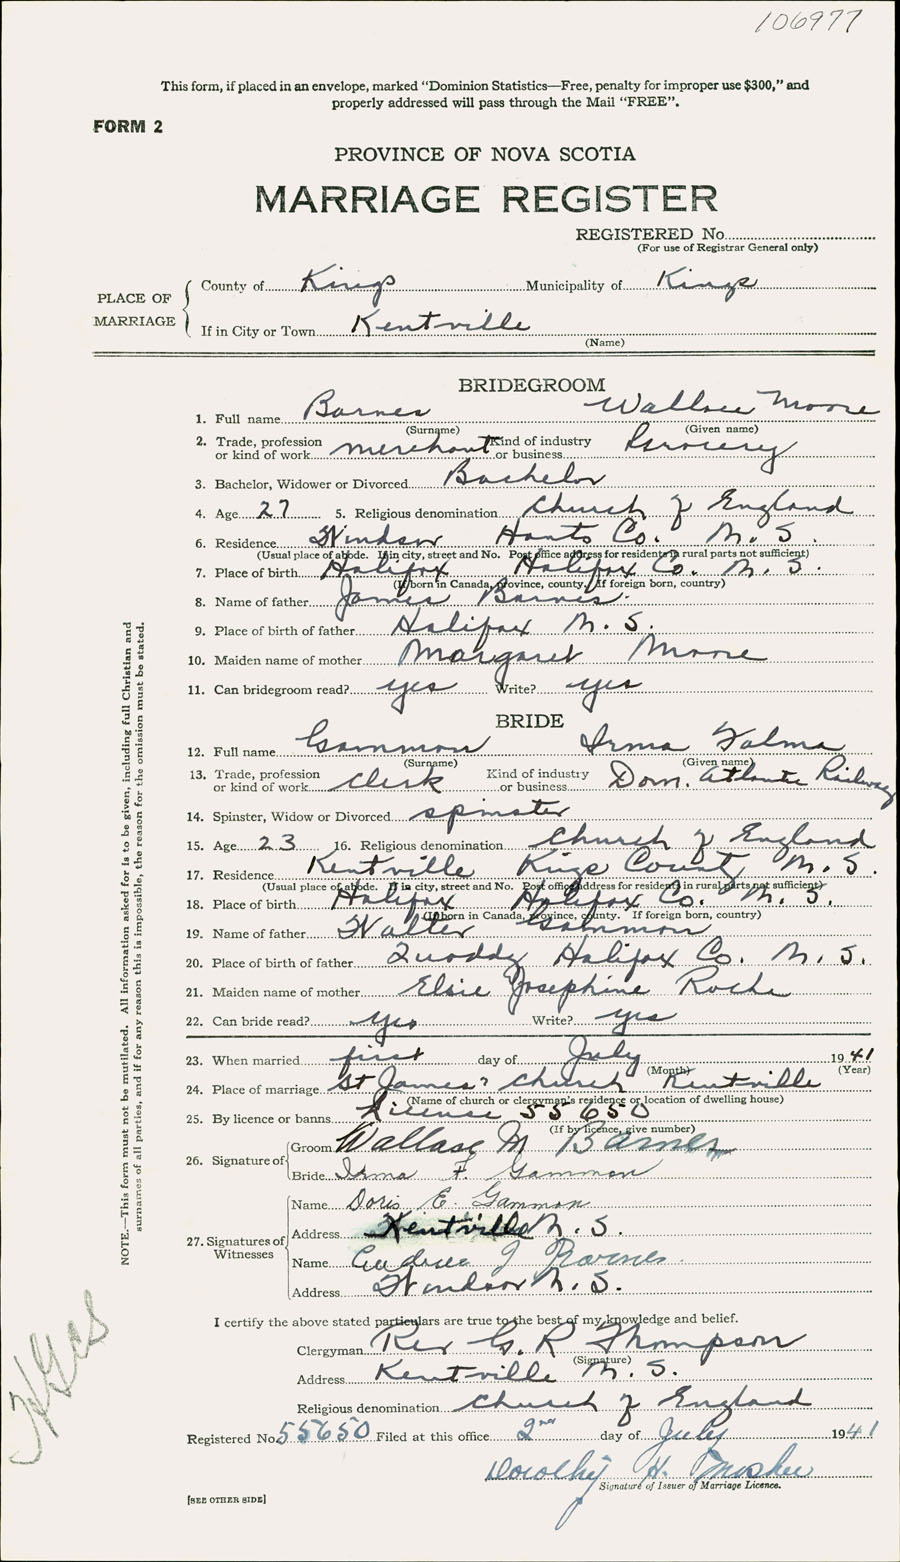 106977
This form, if placed in an envelope, marked “Dominion Statistics—Free, penalty for improper use $300,” and
properly addressed will pass through the Mail “FREE”.
FORM 2
PROVINCE OF NOVA SCOTIA
MARRIAGE REGISTER
REGISTERED No.
(For use of Registrar General only)
PLACE OF MARRIAGE
County of Kings Municipality of Kings
If in City or Town Kentville
(Name)
BRIDEGROOM
1. Full name Barnes Wallace Moore
(Surname) (Given name)
2. Trade, profession or kind of work merchant Kind of industry or business Grocery
3. Bachelor, Widower or Divorced Bachelor
4. Age 27 5. Religious denomination Church of England
6. Residence Windsor Hants Co. N. S.
(Usual place of abode. If in city, street and No. Post office address for residents in rural parts not sufficient)
7. Place of birth Halifax Halifax Co. N. S.
(If born in Canada, province, county. If foreign born, country)
8. Name of father James Barnes.
9. Place of birth of father Halifax N. S.
10. Maiden name of mother Margaret Moore
11. Can bridegroom read? yes Write? yes
BRIDE
12. Full name Gammon Irma Falma
(Surname) (Given name)
13. Trade, profession or kind of work clerk Kind of industry or business Dom. Atlantic Railway
14. Spinster, Widow or Divorced spinster
15. Age 23 16. Religious denomination Church of England
17. Residence Kentville Kings County N. S.
(Usual place of abode. If in city, street and No. Post office address for residents in rural parts not sufficient)
18. Place of birth Halifax Halifax Co. N. S.
(If born in Canada, province, county. If foreign born, country)
19. Name of father Walter Gammon
20. Place of birth of father Quoddy Halifax Co. N. S.
21. Maiden name of mother Elsie Josephine Roche
22. Can bride read? yes Write? yes
23. When married first day of July 1941
(Month) (Year)
24. Place of marriage St James' Church Kentville
(Name of church or clergyman's residence or location of dwelling house)
25. By licence or banns License 55650
(If by licence, give number)
26. Signature of
Groom Wallace M Barnes
Bride Irma F. Gammon
27. Signatures of Witnesses
Name Doris E. Gammon
Address Kentville N. S.
Name Audrea J Barnes.
Address Windsor N. S.
I certify the above stated particulars are true to the best of my knowledge and belief.
Clergyman Rev G. R Thompson
(Signature)
Address Kentville N. S.
Religious denomination Church of England
Registered No. 55650 Filed at this office 2nd day of July 1941
Dorothy H.
Signature of Issuer of Marriage Licence.
[SEE OTHER SIDE]
NOTE.—This form must not be mutilated. All information asked for is to be given, including full Christian and
surnames of all parties, and if for any reason this is impossible, the reason for the omission must be stated.